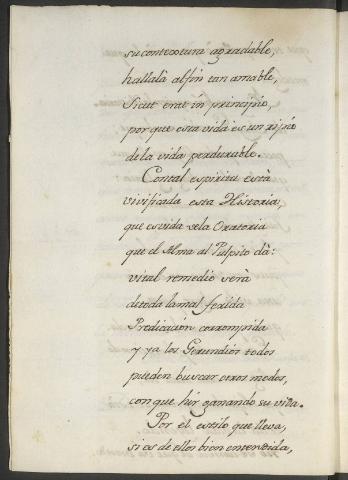 su contextura agradable,
hallala al fin tan amable,
Sicut erat in principio,
porque esta vida es un ripio
de la vida perdurable.
Contal espiritu està
vivificada esta Historia,
que es vida dela Oratoria
que el Alma al Pulpito dà:
vital remedio serà
de toda la mal ferida
Predicación corrompida
y ya los Gerundios todos
pueden buscar otros modos,
con que hir ganando su vida.
Por el estilo que lleva,
si es de ellos bien entendida,